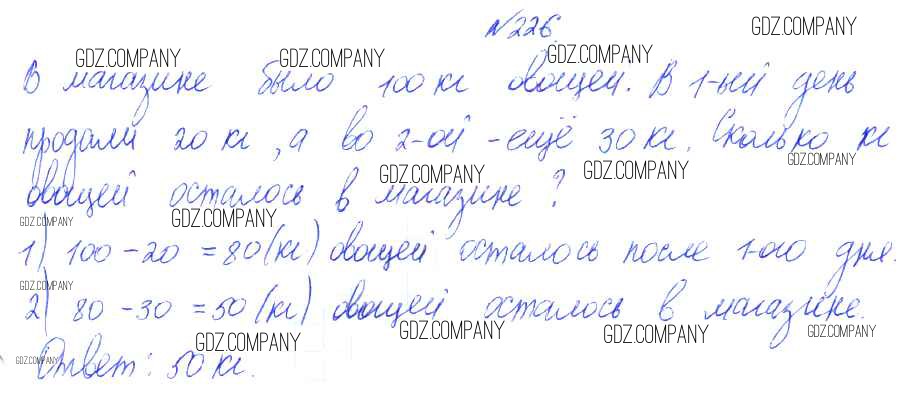 №226
GDZ.COMPANY
GDZ.COMPANY GDZ.COMPANY GDZ.COMPANY
В магазине было 100 кг овощей. В 1-ый день
продали 20 кг, а во 2-ой - ещё 30 кг. Сколько кг
GDZ.COMPANY GDZ.COMPANY GDZ.COMPANY
овощей осталось в магазине?
GDZ.COMPANY GDZ.COMPANY
1) 100 - 20 = 80 (кг) овощей осталось после 1-ого дня.
GDZ.COMPANY
2) 80 - 30 = 50 (кг) овощей осталось в магазине.
GDZ.COMPANY GDZ.COMPANY GDZ.COMPANY GDZ.COMPANY
GDZ.COMPANY
Ответ: 50 кг.